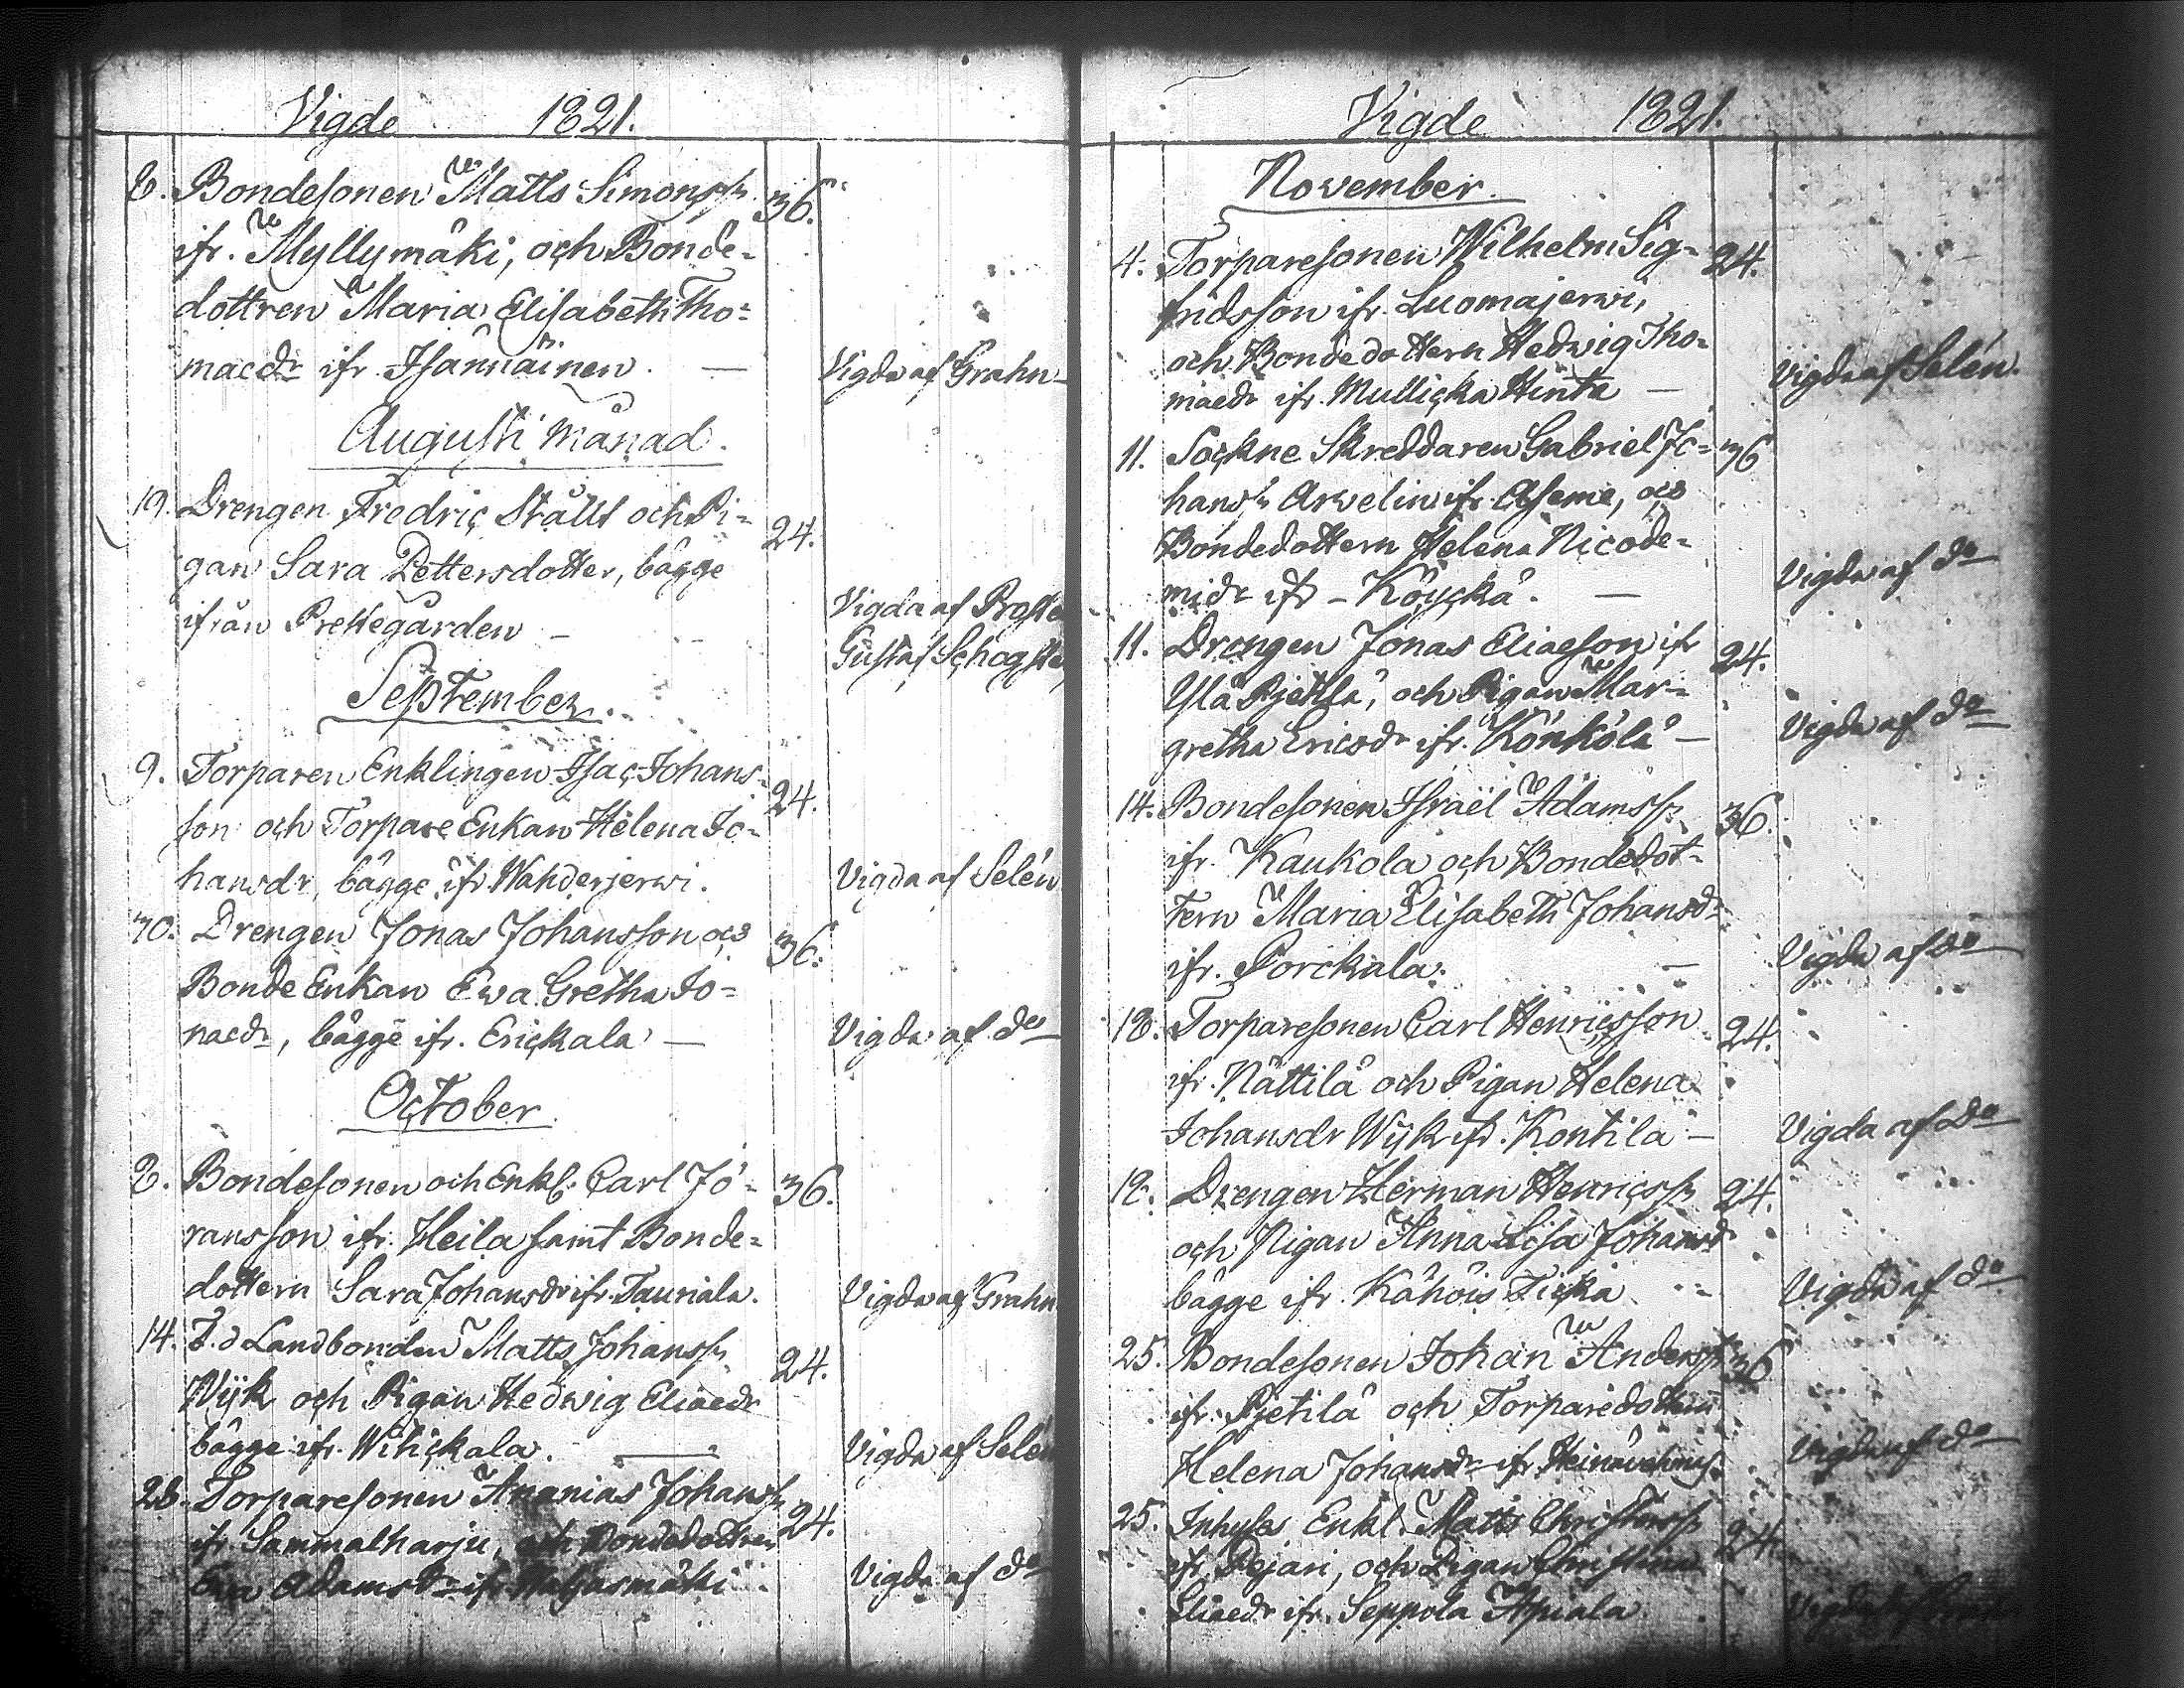 Vigde 1821.
8. Bondesonen Matts Simonss. 36.
ifr. Myllymäki, och Bonde-
dottren Maria Elisabeth Tho-
maedr ifr Isännäinen. — Vigda af Grahn
Augusti månad.
19. Drengen Fredric Stållt och Pi- 24.
gan Sara Pettersdotter, bägge
ifrån Prestegården – Vigda af Proste
Gustaf
September.
9. Torparen Enklingen Isac Johans- 24.
son och Torpare Enkan Helena Jo-
hansdr, bägge ifr Wahderjerwi. Vigda af Selén
30. Drengen Jonas Johansson och 36.
Bonde Enkan Ewa Gretha Jo-
naedr, bägge ifr. Erickala — Vigda af do
October
8. Bondesonen och Enkl. Carl Jö- 36.
ransson ifr. Heila samt Bonde-
dottern Sara Johansdr ifr. Tauriala. Vigda af Grahn
14. F.d Landbonden Matts Johanss. 24.
Wijk och Pigan Hedwig Eliaedr
bägge ifr. Wihickala. — Vigda af Selén
28. Torparesonen Ananias Johanss. 24.
ifr Sammalharju, och Bondedottren
Ewa Adamsdr ifr Vigda af do
Vigde 1821.
November.
4. Torparesonen Wilhelm Sig- 24.
fridsson ifr. Luomajerwi,
och Bondedottern Hedwig Tho-
maedr ifr. Mullicka Hinta — Vigda af Selén.
11. Sockne Skreddaren Gabriel Jo- 36
hanss. Arvelin ifr. och
Bondedottern Helena Nicode-
midr ifr – Köyckä. — Vigda af do
11. Drengen Jonas Eliaeson ifr 24.
Ylä Pjetilä, och Pigan Mar-
gretha Ericsdr ifr. Könkölä — Vigda af do
14. Bondesonen Israël Adamss. 36.
ifr. Kaukola och Bondedot-
tern Maria Elisabeth Johansdr
ifr. Porckala. — Vigda af do
18. Torparesonen Carl Henricsson 24.
ifr. Nättilä och Pigan Helena
Johansdr Wijk ifr. Kontila — Vigda af Do
18. Drengen Herman Henricss. 24.
och Pigan Anna Lisa Johansdr
bägge ifr. Kähöis Ticka Vigda af do
25. Bondesonen Johan Anderss. 36
ifr. Pjetilä och Torparedottern
Helena Johansdr ifr. Vigda af do
25. Inhyses Enkl. Matts Christerss. 24.
ifr. Pejari, och Pigan Christina
Eliaedr ifr. Seppola Apiala Vigda